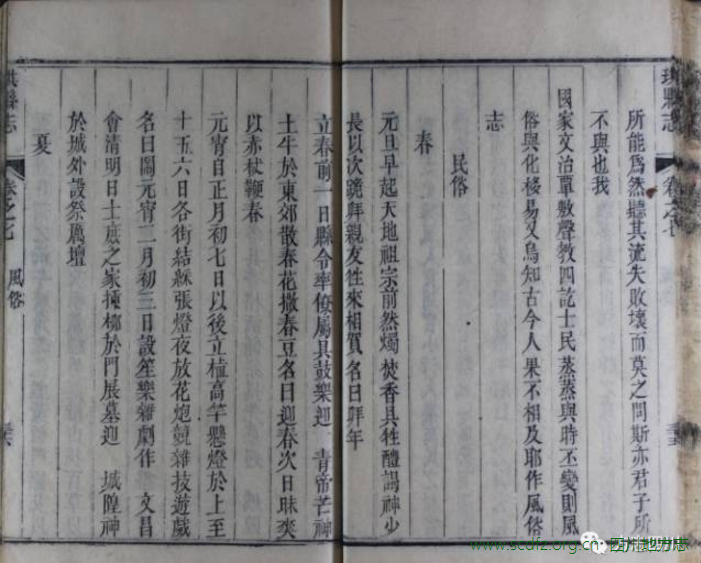 珙縣志
所能爲然聽其流失敗壞而莫之問斯亦君子所
不與也我
國家文治覃敷聲教四訖士民蒸蒸與時丕變則風
俗與化移易又烏知古今人果不相及耶作風俗
志
民俗
春
元旦早起天地祖宗前然燭焚香具牲醴謁神少
長以次跪拜親友往來相賀名曰拜年
立春前一日縣令率僚屬具鼓樂迎 青帝芒神
土牛於東郊散春花撒春豆名曰迎春次日昧爽
以赤杖鞭春
元宵自正月初七日以後立植高竿懸燈於上至
十五六日各街結綵張燈夜放花炮競雜技遊戲
名曰鬧元宵二月初三日設笙樂雜劇作 文昌
會清明日士庶之家揷柳於門展墓迎 城隍神
於城外設祭厲壇
夏
珙縣志
卷之七
風俗
www.scdfz.org.cn
四川地方志